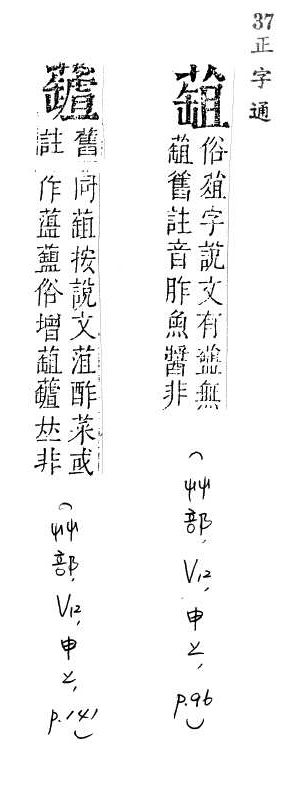 37 正字通
俗字說文有無
舊註音胙魚醬非
(艸部, V12, 申上, p.96)
舊註
同按說文菹酢菜或
作俗增𠀤非
(艸部, V12, 申上, p.141)